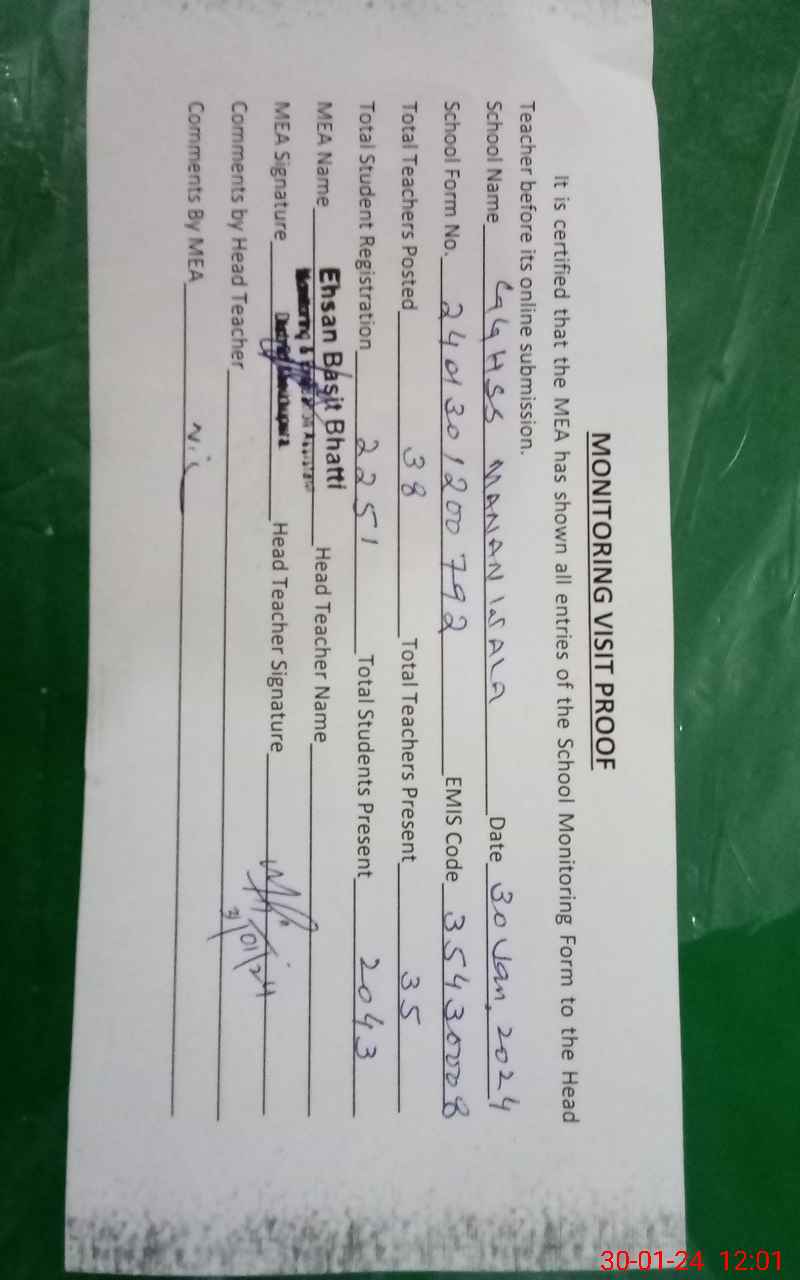 MONITORING VISIT PROOF
It is certified that the MEA has shown all entries of the School Monitoring Form to the Head
Teacher before its online submission.
School Name GGHSS MANANWALA Date 30 Jan, 2024
School Form No. 2401301200792 EMIS Code 35430008
Total Teachers Posted 38 Total Teachers Present 35
Total Student Registration 2251 Total Students Present 2043
MEA Name Ehsan Basit Bhatti Head Teacher Name
Monitoring &
MEA Signature District Head Teacher Signature
Comments by Head Teacher
Comments By MEA Nil
30-01-24 12:01